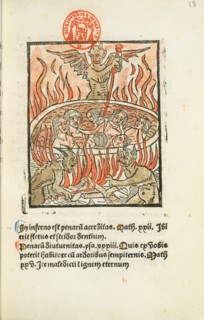 In inferno est penarū acerbitas. Math. xxii. Ibi
erit fletus et stridor dentium
Penarū diuturnitas. psa. xxxiii. Quis ex vobis
poterit habitare cū ardoribus sempiternis. Math
xxv. Ite maledicti ī ignem eternum